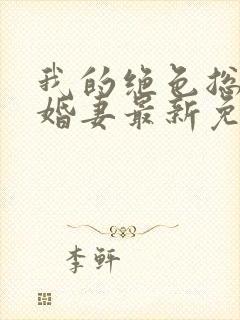 我的绝色总
婚妻最新免
李轩